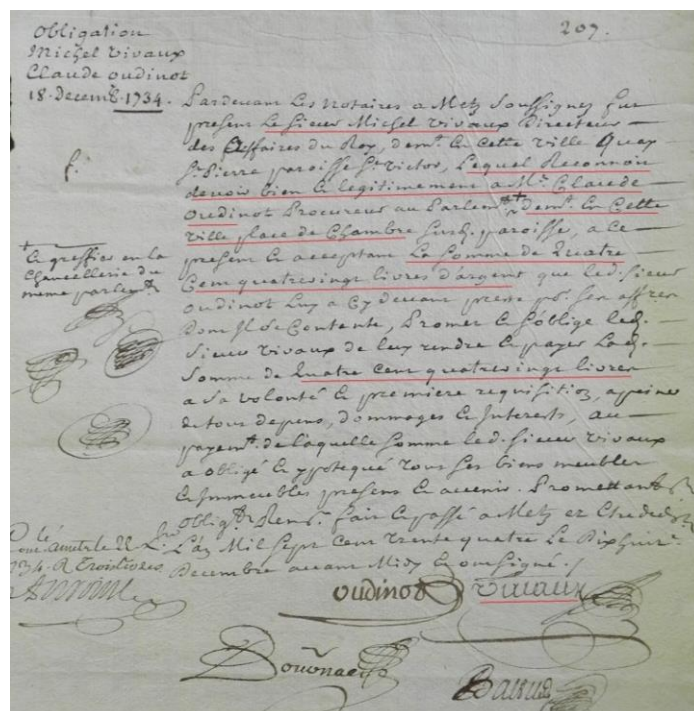 obligation
Michel vivaux
Claude oudinot
18. decemb. 1734.
207.
Pardevant Les Notaires a Metz Soussignez fut
present Le Sieur Michel vivaux Directeur
des Affaires du Roy, demt. en cette ville Quay
St. Pierre paroisse St. victor, Lequel Reconnoit
devoir bien et legitimement a Me. Claude
Oudinot Procureur au Parlemt. demt. en Cette
ville place de Chambre susd. paroisse, a ce
present et acceptant La Somme de Quatre
Cent quatrevingt livres d'argent que led. Sieur
oudinot Luy a Cy devant presté pr. ses affres
Dont Il se Contente, Promet et s'oblige led.
Sieur vivaux de luy rendre et payer Lad.
Somme de Quatre Cent quatrevingt livres
a Sa volonté et premiere requisition, a peine
de tous depens, dommages et Interests, au
payemt. de laquelle Somme led. Sieur vivaux
a obligé et ypotequé tous ses biens meubles
et Immeubles presens et avenir. Promettant
obligt. Rent. fait et passé a Metz
L'an Mil Sept Cent trente quatre Le Dixhuit
Decembre avant Midy et ont signé.
+
et greffier en la
Chancellerie du
meme parlemt.
oudinot vivaux